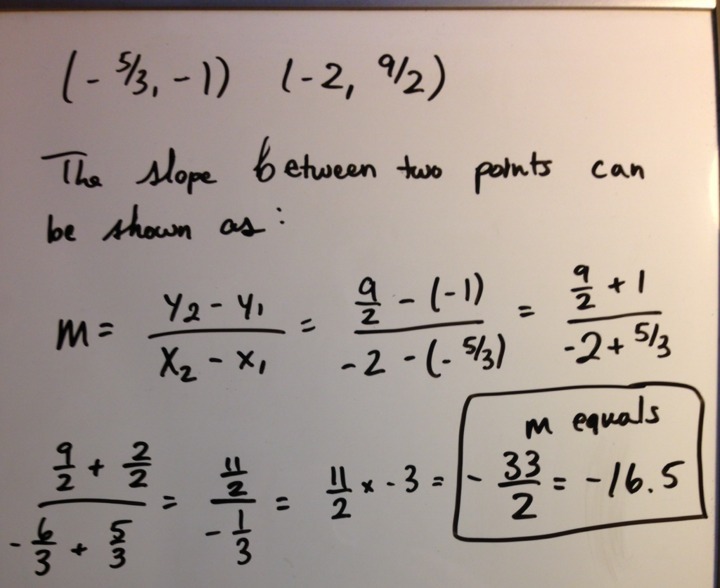 (- 5/3, -1) (-2, 9/2)
The slope between two points can
be shown as:
m = (y₂ - y₁)/(x₂ - x₁) = (9/2 - (-1))/(-2 - (- 5/3)) = (9/2 + 1)/(-2 + 5/3)
(9/2 + 2/2)/(- 6/3 + 5/3) = (11/2)/(- 1/3) = 11/2 x -3 =
m equals
- 33/2 = -16.5